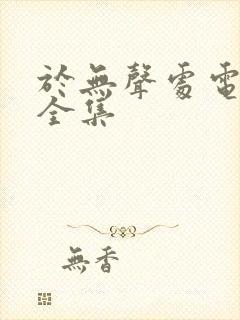 於無聲處電
全集
無香